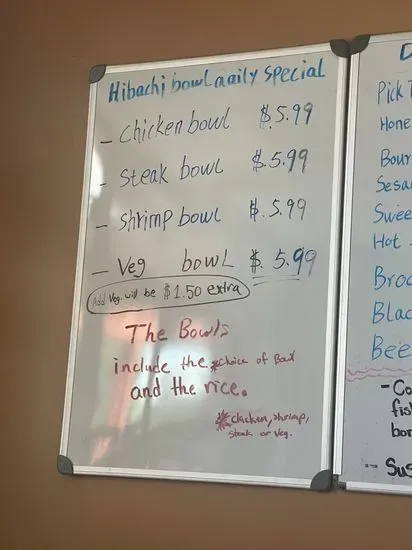 Hibachi bowl daily special
- Chicken bowl $5.99
- Steak bowl $5.99
- Shrimp bowl $.5.99
- Veg bowl $.5.99
Add Veg. will be $1.50 extra
The Bowls
include the choice of Bowl
and the rice.
chicken, shrimp,
steak or veg.
Pick
Hone
Bour
Sesa
Swee
Hot
Broc
Blac
Bee
- Co
fis
bo
- Sus